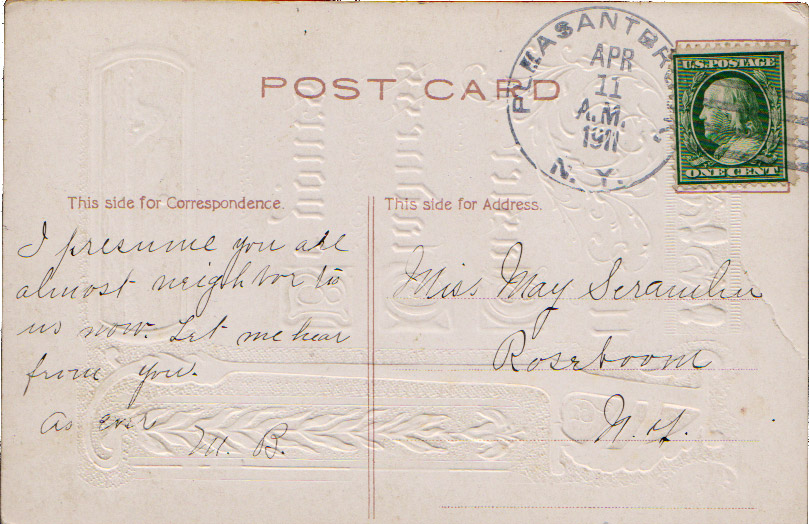 POST CARD
PLEASANTBR
APR
11
A.M.
1911
N. Y.
U.S. POSTAGE
ONE CENT
This side for Correspondence.
This side for Address.
I presume you are
almost neighbor to
us now. Let me hear
from you.
As ever
M. B.
Miss May
Roseboom
N. Y.